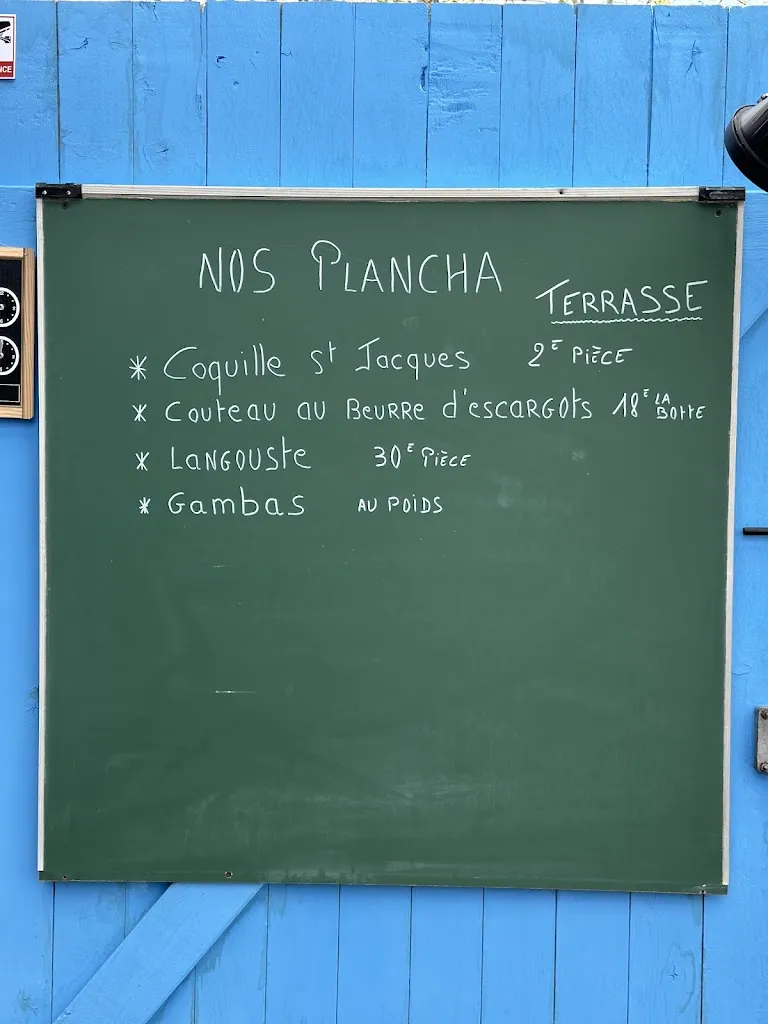 NOS PLANCHA
TERRASSE
* Coquille St Jacques 2€ PIÈCE
* Couteau au Beurre d'escargots 18€ LA BOTTE
* Langouste 30€ PIÈCE
* Gambas AU POIDS
NCE